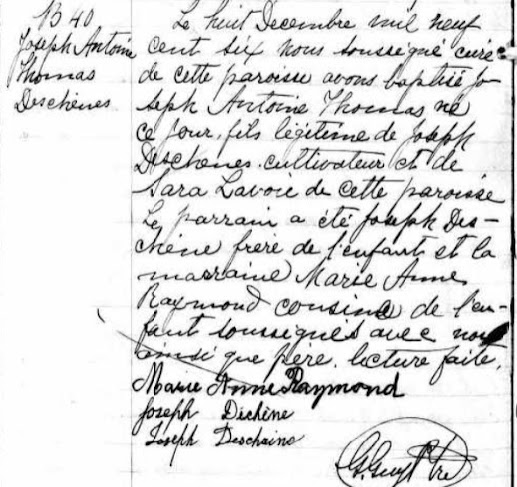 B 40
Joseph Antoine
Thomas
Deschènes
Le huit Decembre mil neuf
cent six nous soussigné curé
de cette paroisse avons baptisé Jo
seph Antoine Thomas né
ce jour, fils légitime de Joseph
Deschenes cultivateur et de
Sara Lavoie de cette paroisse
Le parrain a été Joseph Des-
chêne frère de l'enfant et la
marraine Marie Anne
Raymond cousine de l'en-
fant soussignés avec nous
ainsi que père. lecture faite.
Marie Anne Raymond
Joseph Dechène
Joseph Deschaine
G. Guy Ptre